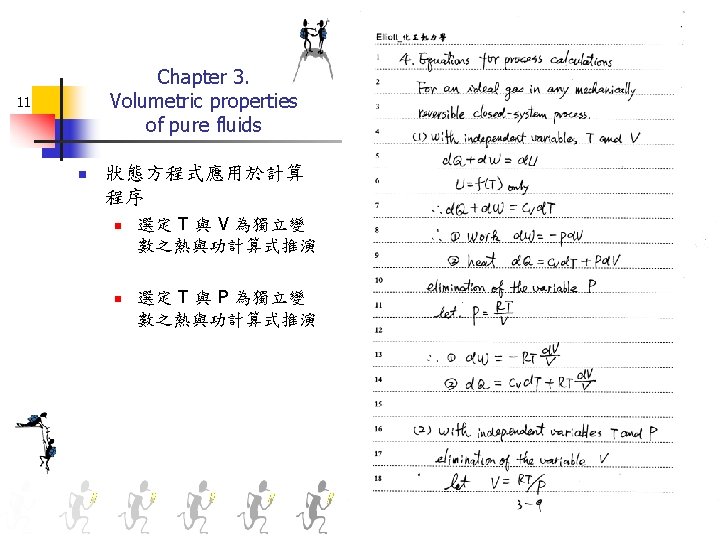 11
Chapter 3.
Volumetric properties
of pure fluids
狀態方程式應用於計算
程序
選定 T 與 V 為獨立變
數之熱與功計算式推演
選定 T 與 P 為獨立變
數之熱與功計算式推演
Elliott_化工熱力學
1 4. Equations for process calculations
2 For an ideal gas in any mechanically
3 reversible closed-system process.
4 (1) with independent variables, T and V
5 dQ + dW = dU
6 U = f(T) only
7 ∴ dQ + dW = CvdT
8 ∴ ① work dW = -pdV
9 ② heat dQ = CvdT + PdV
10 elimination of the variable P
11 let P = RT/V
12
13 ∴ ① dW = -RT dV/V
14 ② dQ = CvdT + RT dV/V
15
16 (2) With independent variables T and P
17 elimination of the variable V
18 let V = RT/P
3-9